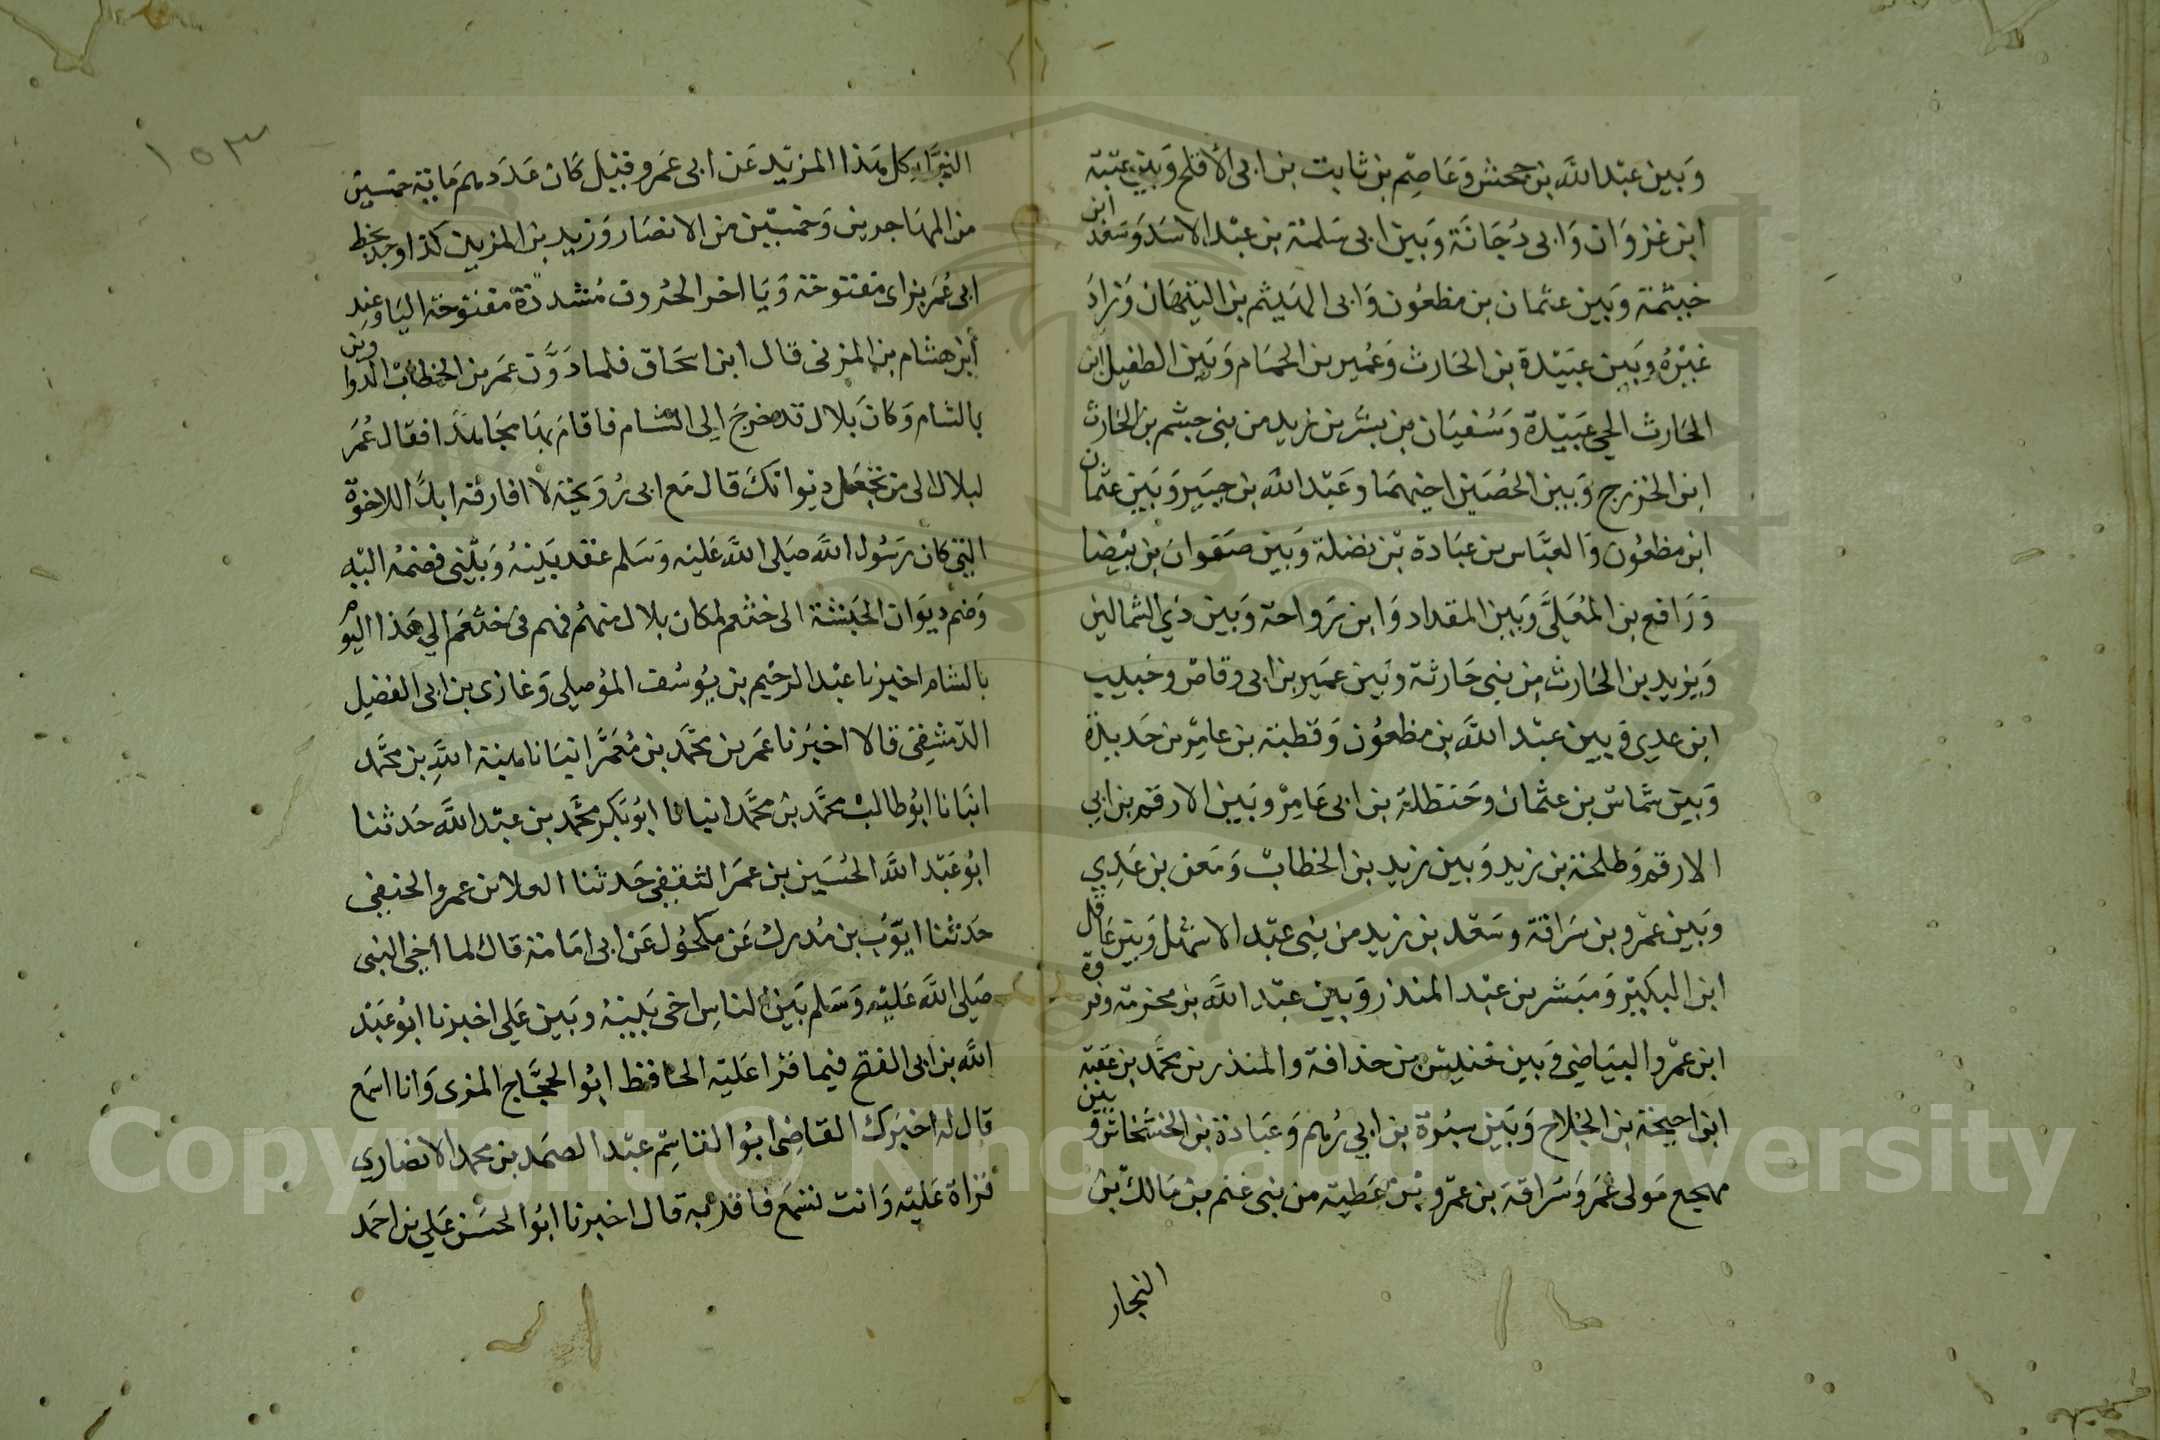 وَبين عبْد اللَّه بن جحش وَعَاصِم بن ثابت بن ابى الأفلح وَبين عتبة
ابن غزوَان وَابى دُجَانَة وَبين ابى سَلمة بن عبْد الاسَد وَسَعْد ابن
خيثمة وَبين عثمان بن مظعُون وَابى الهَيثم بن التيهَان وَزادَ
غيْرُه وَبَين عبَيْدة بن الحَارث وَعُمير بن الحمَام وَبَين الطفيل ابن
الحَارث اخى عبَيْدة وَسُفيَان بن بشر بن زيد من بنى جشم بن الحَارث
ابن الخزرج وَبين الحُصَين اخيهمَا وعَبْد الله بن جبَير وَبَين عثمان
ابن مظعُون وَالعبَّاس بن عبَادة بن نضلة وَبين صَفوان بن بيْضا
وَرَافع بن المُعَلَّى وَبين المقداد وَابن رَوَاحة وَبين ذي الشمالين
وَيزيد بن الحَارث من بنى حَارثة وَبَين عمَير بن ابى وقاص وخبيب
ابن عدِى وَبين عبْد اللَّه بن مظعُون وَقطبة بن عامِر بن حَديدة
وَبَين شمَّاس بن عثمَان وحَنظلة بن ابى عَامِر وبَين الارقم بن ابى
الارقم وَطلحة بن زيد وَبين زيد بن الخطاب وَمَعن بن عَدِي
وَبَين عمْرو بن سَراقة وسَعْد بن زيد من بنى عبْد الاشهل وَبين عَاقل
ابن البكَيْر وَمبَشر بن عبْد المنذر وَبَين عبْد اللَّه بن مخرمة وفروة
ابن عمْرو البيَاضِى وَبَين خنيس بن حذافة والمنذر بن محمَّد بن عقبَة
ابن احيحَة بن الجُلاح وَبَين سبْرة بن ابي رُهم وَعبَادة بن الخشخَاش وَبين
مهجع مَولى عُمَر وَسَراقة بن عمْرو بن عَطية من بنى غنم بن مَالك بن
النجار
النجَّار كل هَذا المزيد عَن ابى عمَرو قيل كَان عَدَدهم مَاية خمسين
من المهَاجرين وَخمسين من الانصَار وَزيد بن المزين كذا وجد بخط
ابى عُمَر بزاى مفتوحَة وَيَا اخر الحُروف مُشددَة مفتوحَة اليَا وَعِند
أبن هشام بن المزنى قال ابن اسحَاق فلما دَوَّن عمَر بن الخطاب الدواوين
بالشام وَكانَ بلال قد خرجَ الِى الشام فاقامَ بهَا مجَاهدًا فقال عُمَر
لبلال الى من تجْعَل ديوَانكَ قال مَع ابى رُوَيحَة لا افارقه ابدًا للاخوّة
التى كان رَسُول اللَّه صَلى اللَّه عَليه وَسَلم عقد بَينهُ وَبَيْنى فضمهُ اليْه
وَضم ديوَان الحَبشة الى خثعم لمكان بلال منهمُ فهم فى خثعَم الى هَذا اليوم
بالشام اخبرنا عبْد الرحْيم بن يوُسُف الموُصِلى وَغازى بن ابى الفضِل
الدّمشقِى قالا اخبَرنا عمَر بن محمَّد بن مُعَمَّر انبَانا هبَة اللَّهِ بن محمَّد
انبَانا ابوُ طالب محمَّد بن محمَّد انبانا ابوُ بَكر محمَّد بن عبْد اللَّه حَدثنا
ابوُ عَبْد اللَّه الحُسَين بن عمَر الثقفِى حَدثنا العلا بن عمرو الحنفِى
حَدثنا ايوّب بن مُدرك عَن مكحُول عَن ابى امَامَة قال لما أخى النبى
صَلى اللَّه عَليْه وَسَلم بَين الناسِ اخى بَينهُ وبَين عَلى اخبرنا ابوُ عَبْد
اللَّه بن ابى الفتح فيما قرَا عَليْه الحافظ ابوُ الحجَّاج المزى وَانا اسَمع
قال له اخبَرك القاضِى ابوُ القاسِم عبْد الصَمد بن محمد الانصَارى
قرَاة عَليْه وَانت تسْمَع فاقرَّ به قال اخبرنا ابوُ الحسَن عَلي بن احمَد
١٥٣
Copyright © King Saud University